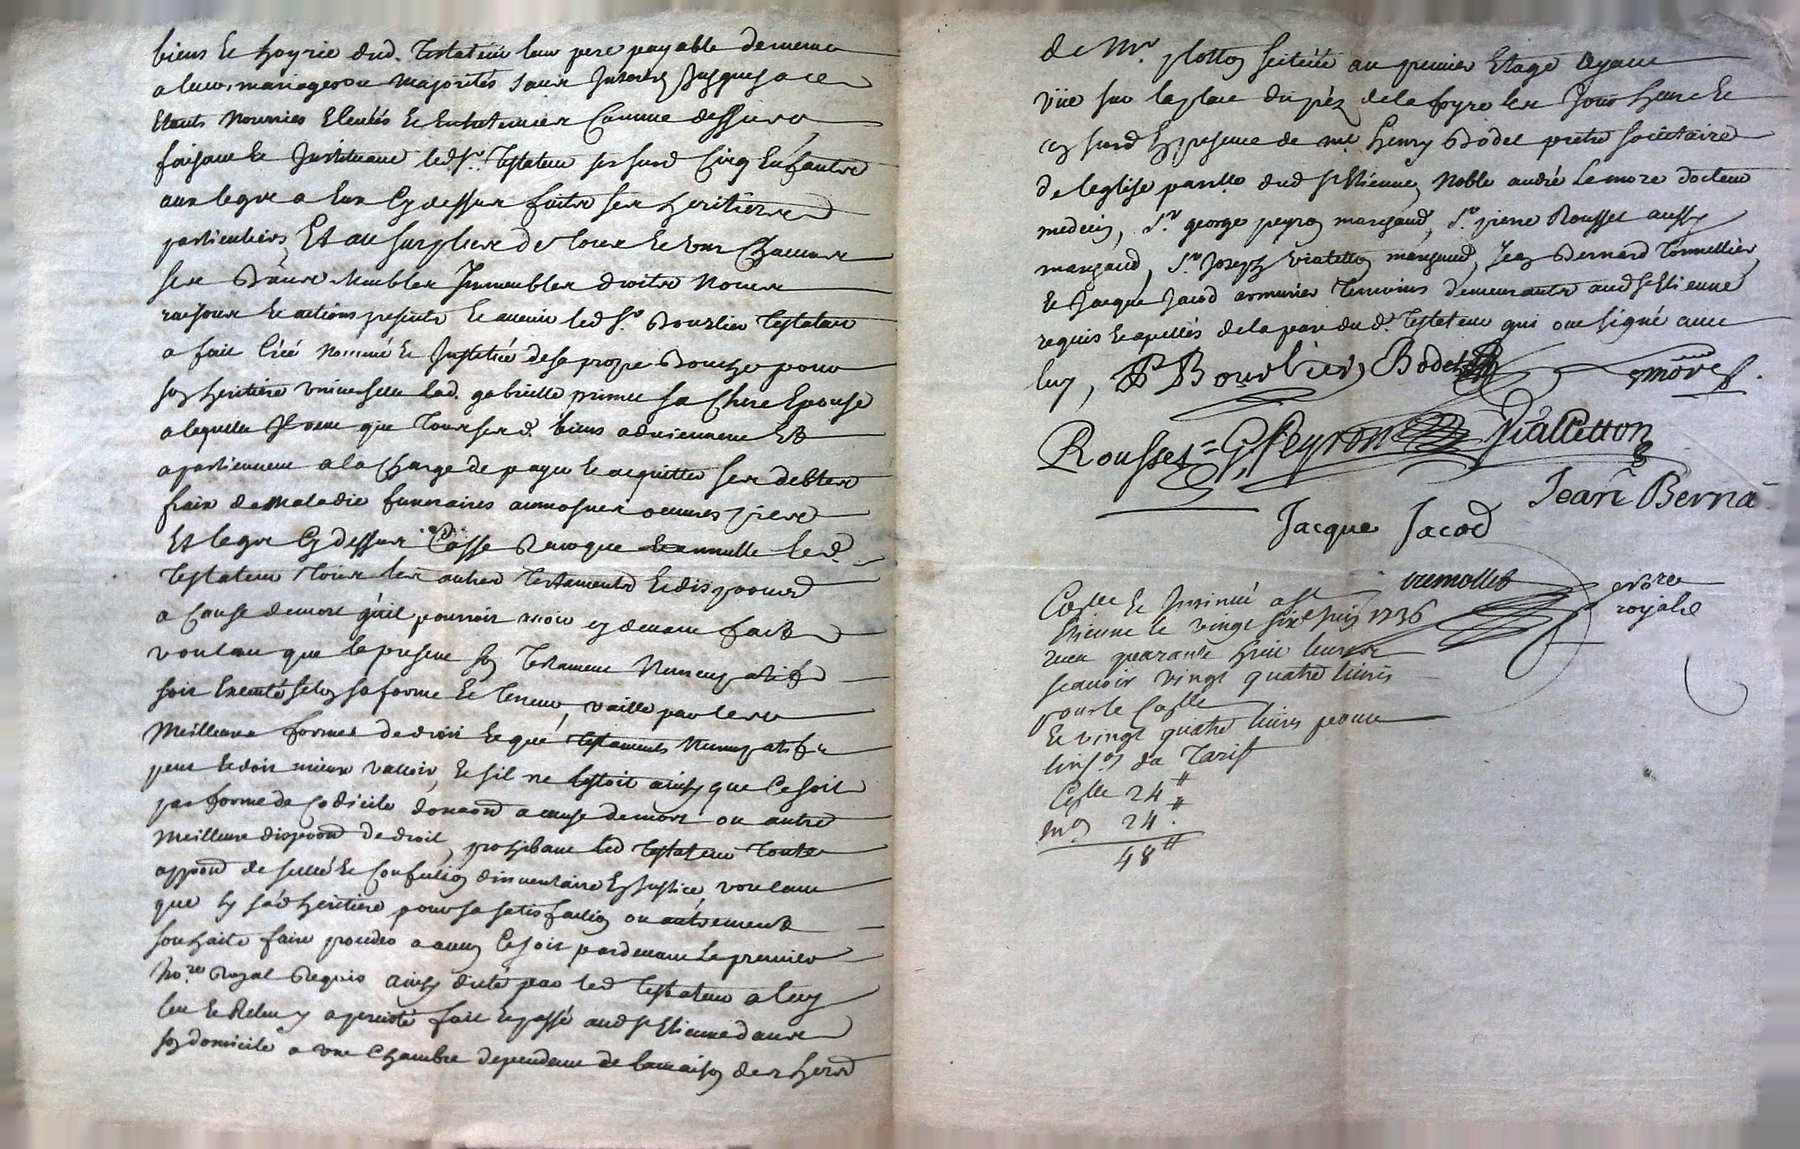 biens et hoyrie dud. Testateur leur pere payable de meme
a leurs mariages ou majorités sans Interets Jusques a ce
Etants nourries Elevées et Entretenues Comme dessus
faisant et Instituant led. Sr. Testateur ses susd Cinq Enfants
aux legats a Eux Cy dessus faits ses heritiers
particuliers, Et au surplus de tous et uns Chacuns
ses Biens Meubles Immeubles droits Noms
raisons et actions presents et avenir led Sr. Bourlier Testateur
a fait Créé nommé et Institué de sa propre Bouche pour
son heritiere universelle lad. gabrielle primet sa Chere Epouse
a laquelle Il veut que Tous sesd. biens adviennent Et
apartiennent a la Charge de payer et acquitter ses debtes
frais de Maladie funeraires aumosnes oeuvres pies
Et legats Cy dessus Casse Revoque et annulle led
Testateur Tous les autres Testaments et dispoons
a Cause de mort qu'il pourroit avoir cy devant fait
voulant que le present son Testament Nuncupatif
soit Executé selon sa forme et Teneur, vaille par les
Meilleures formes de droit et que Testaments Nuncupatifs
peut et doit mieux valloir, et s'il ne testoit ainsy que Ce soit
par forme de Codicile donaon a cause de mort ou autre
Meilleure dispoon de droit, prohibant led Testateur Toute
appoon de scellé et Confection d'inventaire En Justice, voulant
que sy sad heritiere pour sa satisfaction ou autrement
souhaite faire proceder a aucun Ce soit pardevant Le premier
No.re Royal Requis ainsy dicté par led Testateur a luy
leu et Releu y a persisté fait et passé aud St Etienne dans
son domicile a une Chambre dependant de la maison des hers
de Mr. plotton scituée au premier Etage Ayant
vüe sur la place du préz de la foyre les Jour heure et
an susd En presence de mre Henry Bodet pretre societaire
de leglise parllle dud St Etienne, Noble andré Lemore docteur
medecin, Sr. george peyron marchand, Sr. pierre Rousset aussy
marchand, Sr. Joseph vialetton marchand, Jean Bernard Tonnellier
et Jacque Jacod armurier Temoins demeurants aud St Etienne
requis et apellés de la part du d. Testateur qui ont signé avec
luy, P Bourlier, Bodet Lemore
Rousset = G, Peyron Vialletton
Jean Berna
Jacque Jacod
Colle et Insinué a St
Etienne le vingt sixe Juin 1736
receu quarante huit livres
scavoir vingt quatre livres
pour le Colle
Et vingt quatre livres pour
lins.on du Tarif
Colle 24 ₶
ins.on 24 ₶
48 ₶
tremollet no.re
royale